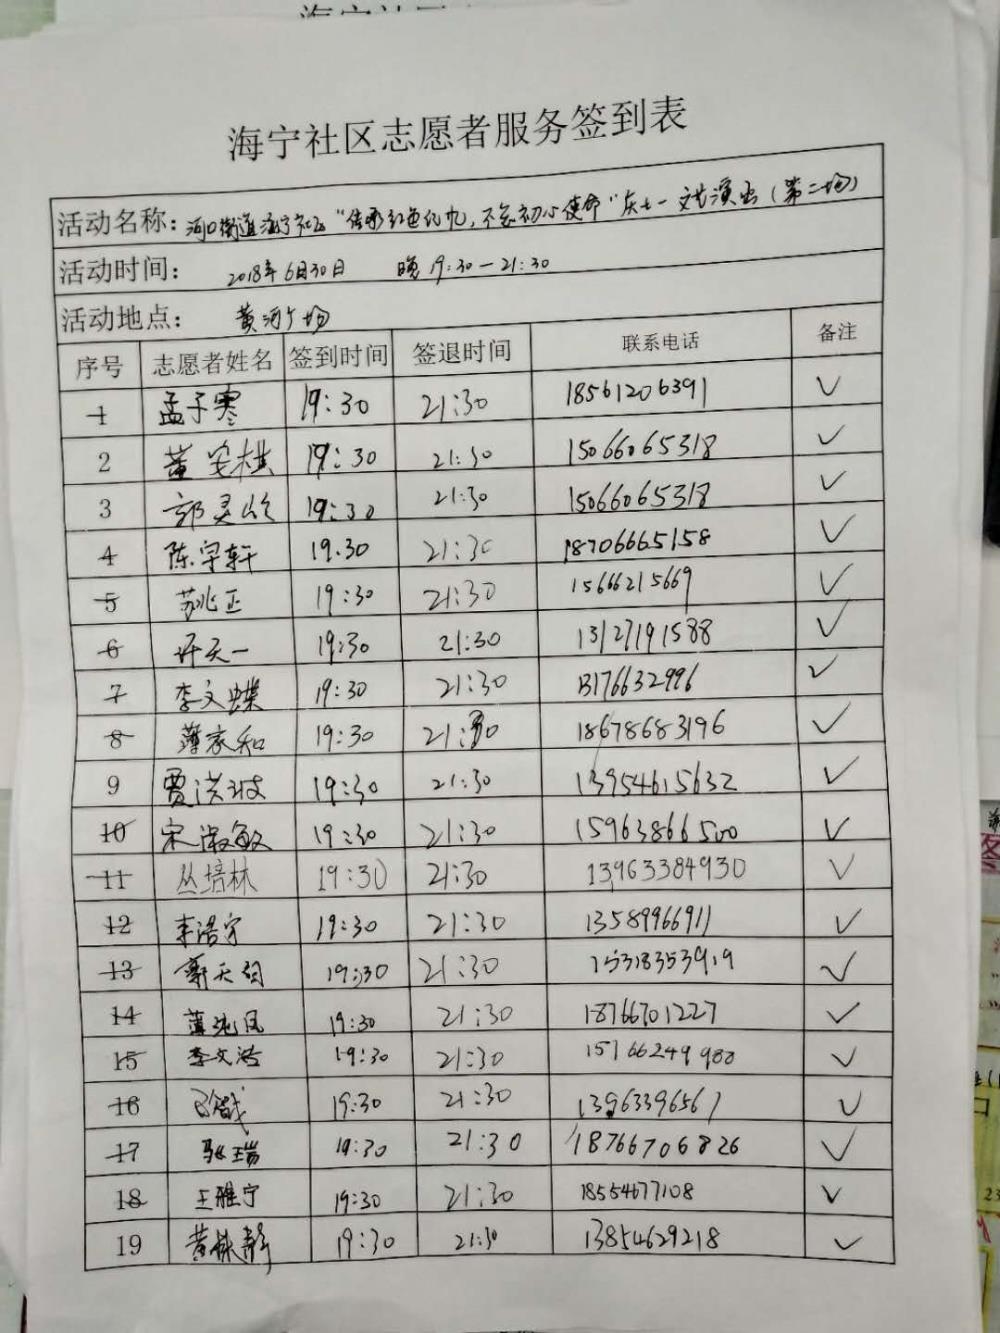 海宁社区志愿者服务签到表
活动名称: 河口街道海宁社区"传承红色记忆,不忘初心使命"庆七一文艺演出(第二场)
活动时间: 2018年6月30日 晚19:30—21:30
活动地点: 黄河广场
序号 志愿者姓名 签到时间 签退时间 联系电话 备注
1 孟子寒 19:30 21:30 18561206391 ✓
2 董安棋 19:30 21:30 15066065318 ✓
3 郭灵 19:30 21:30 15066065318 ✓
4 陈宇轩 19:30 21:30 18706665158 ✓
5 苏兆正 19:30 21:30 15666215669 ✓
6 许天一 19:30 21:30 13127191588 ✓
7 李文蝶 19:30 21:30 13176632996 ✓
8 薄家和 19:30 21:30 18678683196 ✓
9 贾洪波 19:30 21:30 13954615632 ✓
10 宋淑敏 19:30 21:30 15963866500 ✓
11 丛培林 19:30 21:30 13963384930 ✓
12 李浩宇 19:30 21:30 13589966911 ✓
13 天 19:30 21:30 15318353919 ✓
14 19:30 21:30 18766701227 ✓
15 李文浩 19:30 21:30 15166249980 ✓
16 19:30 21:30 13963396561 ✓
17 张瑞 19:30 21:30 18766706826 ✓
18 王雅宁 19:30 21:30 18554677108 ✓
19 黄静 19:30 21:30 13854629218 ✓